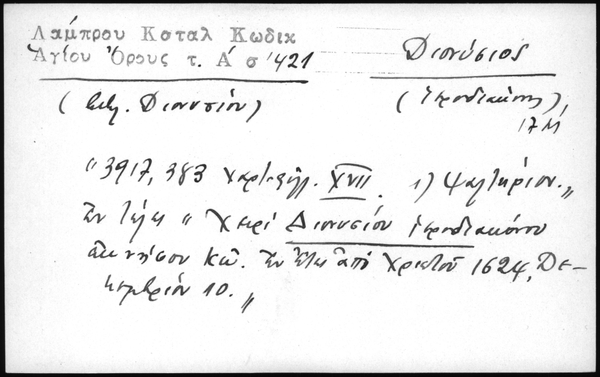 Λάμπρου Καταλ Κωδικ
Ἁγίου Ὄρους τ. Α΄ σ΄ 421
Διονύσιος
(Διονυσίου)
(ἱεροδιάκονος),
17 Μ
"3917, 383 χαρτ. XVII. 1) Ψαλτήριον."
Ἐν τέλει " Χειρὶ Διονυσίου ἱεροδιακόνου
ἐκ νήσου Κῶ. Ἐν ἔτει ἀπὸ Χριστοῦ 1624, Δε-
κεμβρίου 10."